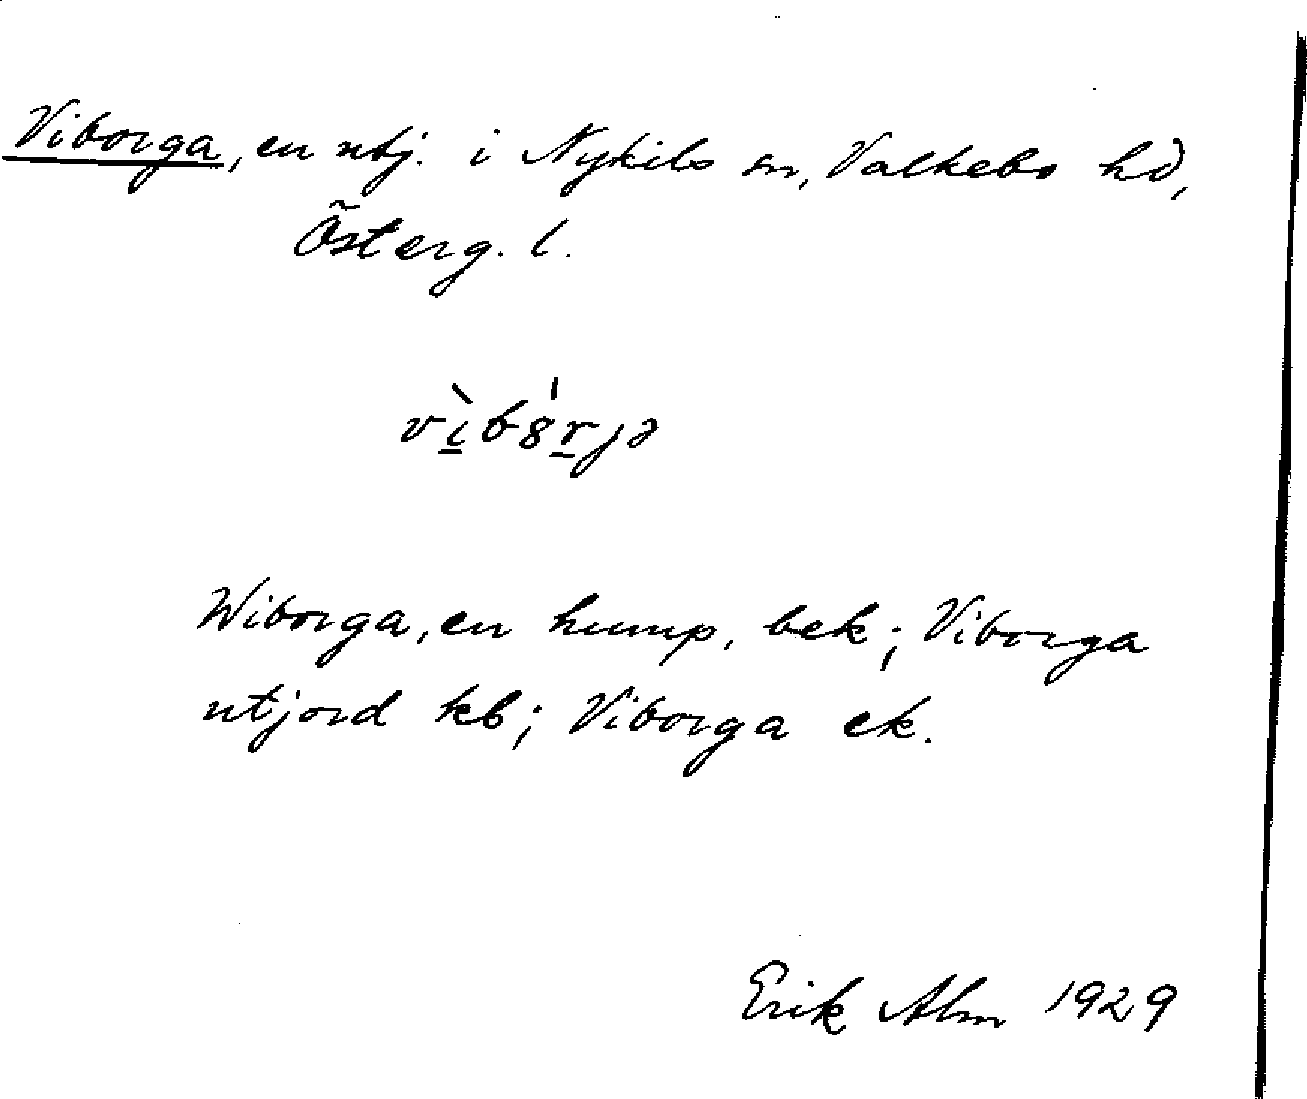 Viborga, en utj. i Nykils sn, Valkebo hd,
Österg. l.
Wiborga, en hump, bek; Viborga
utjord kb; Viborga ek.
Erik Alm 1929